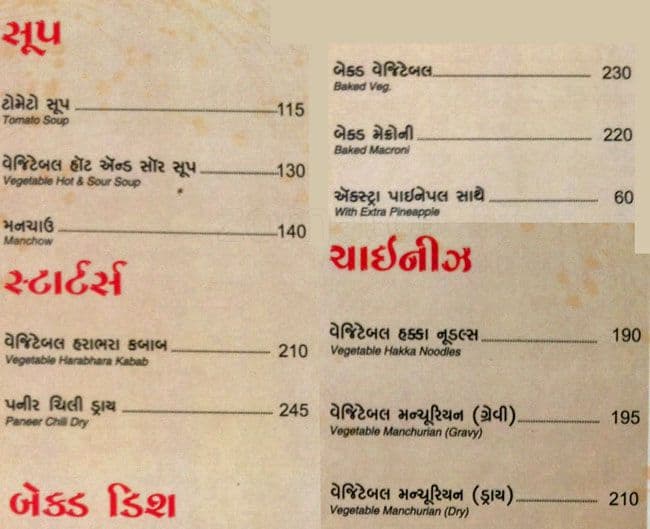 સૂપ
ટોમેટો સૂપ 115
Tomato Soup
વેજિટેબલ હૉટ ઍન્ડ સૉર સૂપ 130
Vegetable Hot & Sour Soup
મનચાઉં 140
Manchow
સ્ટાર્ટર્સ
વેજિટેબલ હરાભરા કબાબ 210
Vegetable Harabhara Kabab
પનીર ચિલી ડ્રાય 245
Paneer Chili Dry
બેકડ ડિશ
બેકડ વેજિટેબલ 230
Baked Veg.
બેકડ મેક્રોની 220
Baked Macroni
ઍકસ્ટ્રા પાઈનેપલ સાથે 60
With Extra Pineapple
ચાઈનીઝ
વેજિટેબલ હક્કા નૂડલ્સ 190
Vegetable Hakka Noodles
વેજિટેબલ મન્ચૂરિયન (ગ્રેવી) 195
Vegetable Manchurian (Gravy)
વેજિટેબલ મન્ચૂરિયન (ડ્રાય) 210
Vegetable Manchurian (Dry)